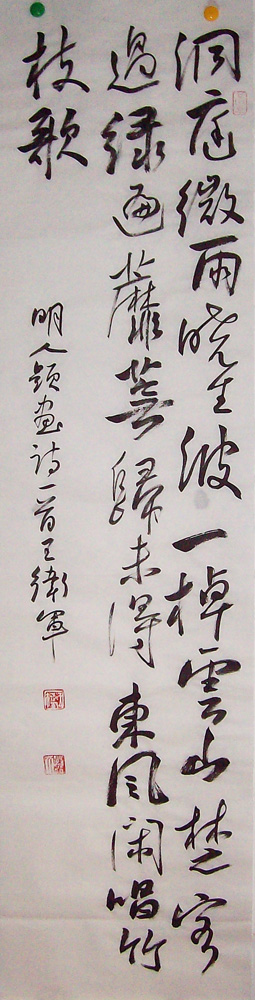 洞庭微雨晓生波一棹云山楚客
过绿遍蘼芜归未得东风闲唱竹
枝歌
明人题画诗一首王卫军